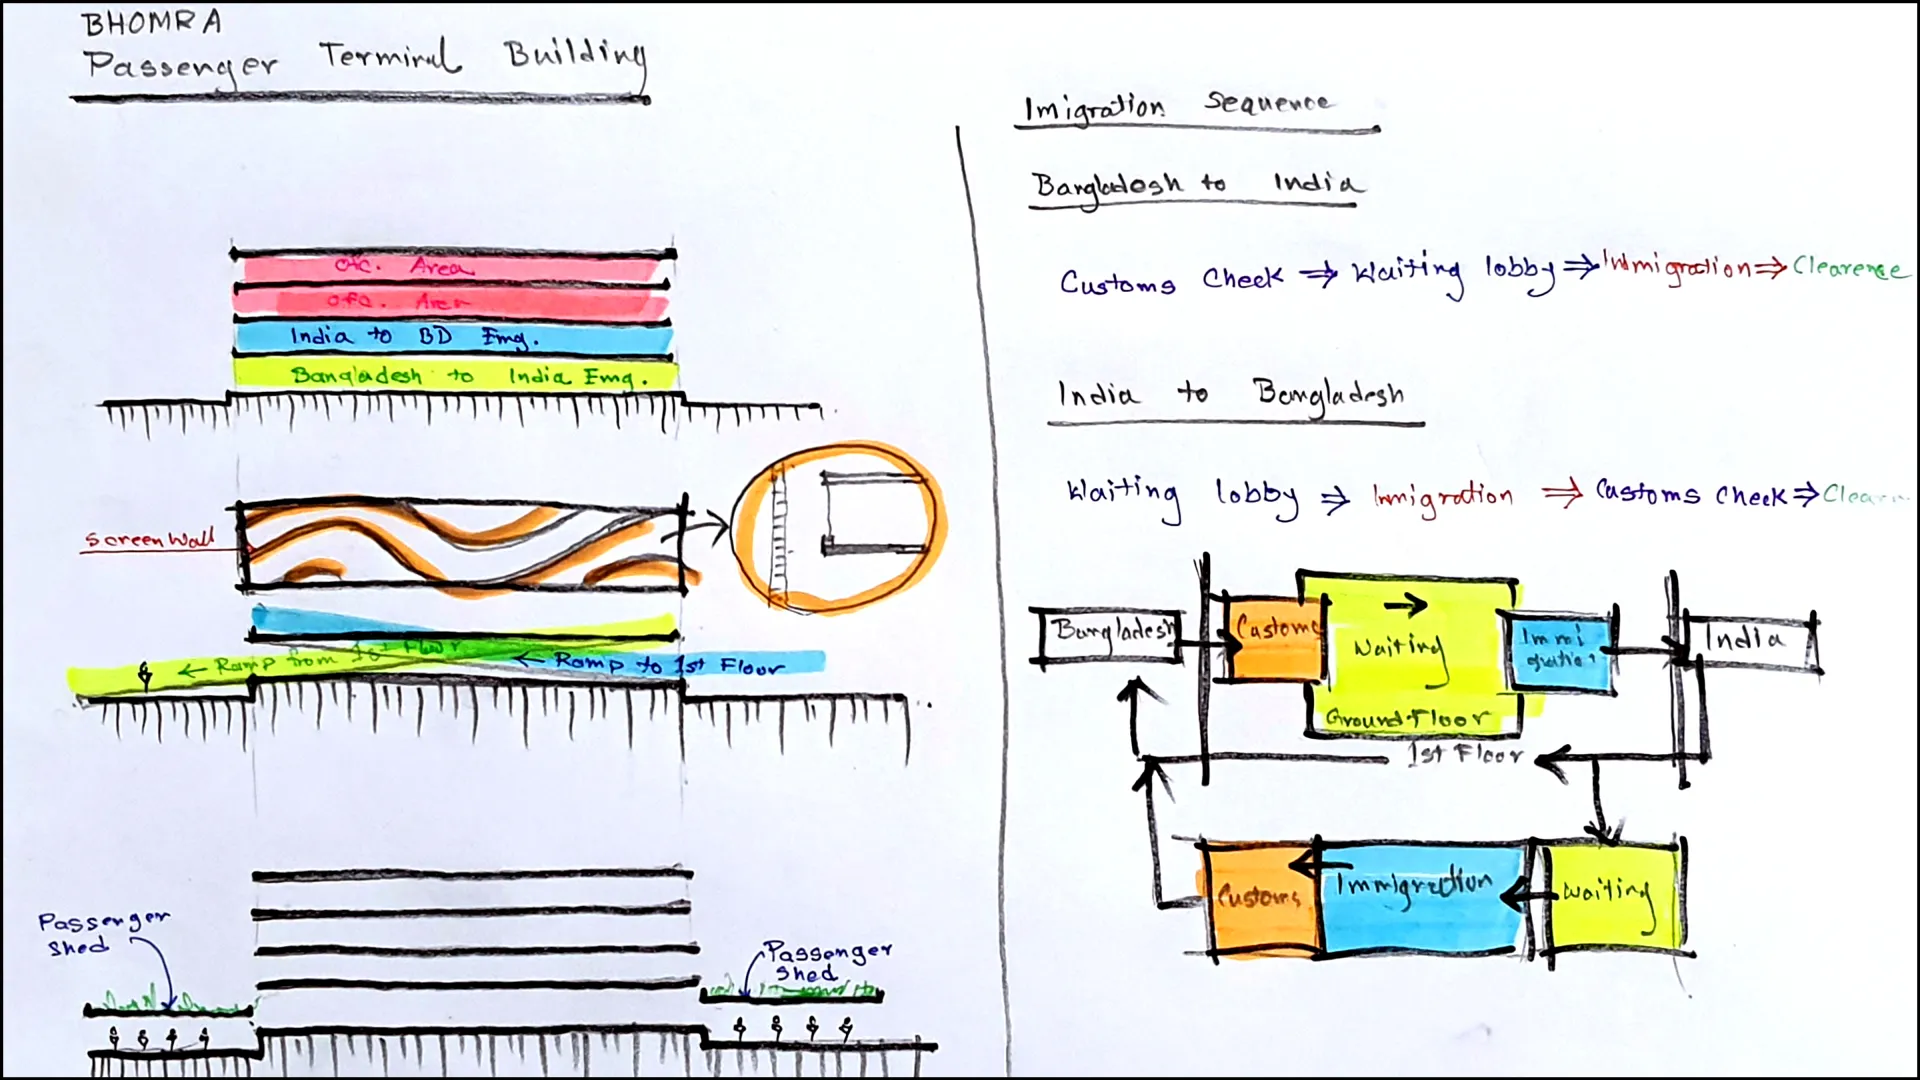 BHOMRA
Passenger Terminal Building
Ofc. Area
ofc. Area
India to BD Emg.
Bangladesh to India Emg.
Screen Wall
← Ramp from 1st Floor
← Ramp to 1st Floor
Passenger
Shed
Passenger
Shed
Imigration Sequence
Bangladesh to India
Customs Check ⇒ Waiting lobby ⇒ Immigration ⇒ Clearence
India to Bangladesh
Waiting lobby ⇒ Immigration ⇒ Customs Check ⇒
Bangladesh
Customs
Waiting
Ground Floor
Immi
gration
India
1st Floor
Customs
Immigration
Waiting